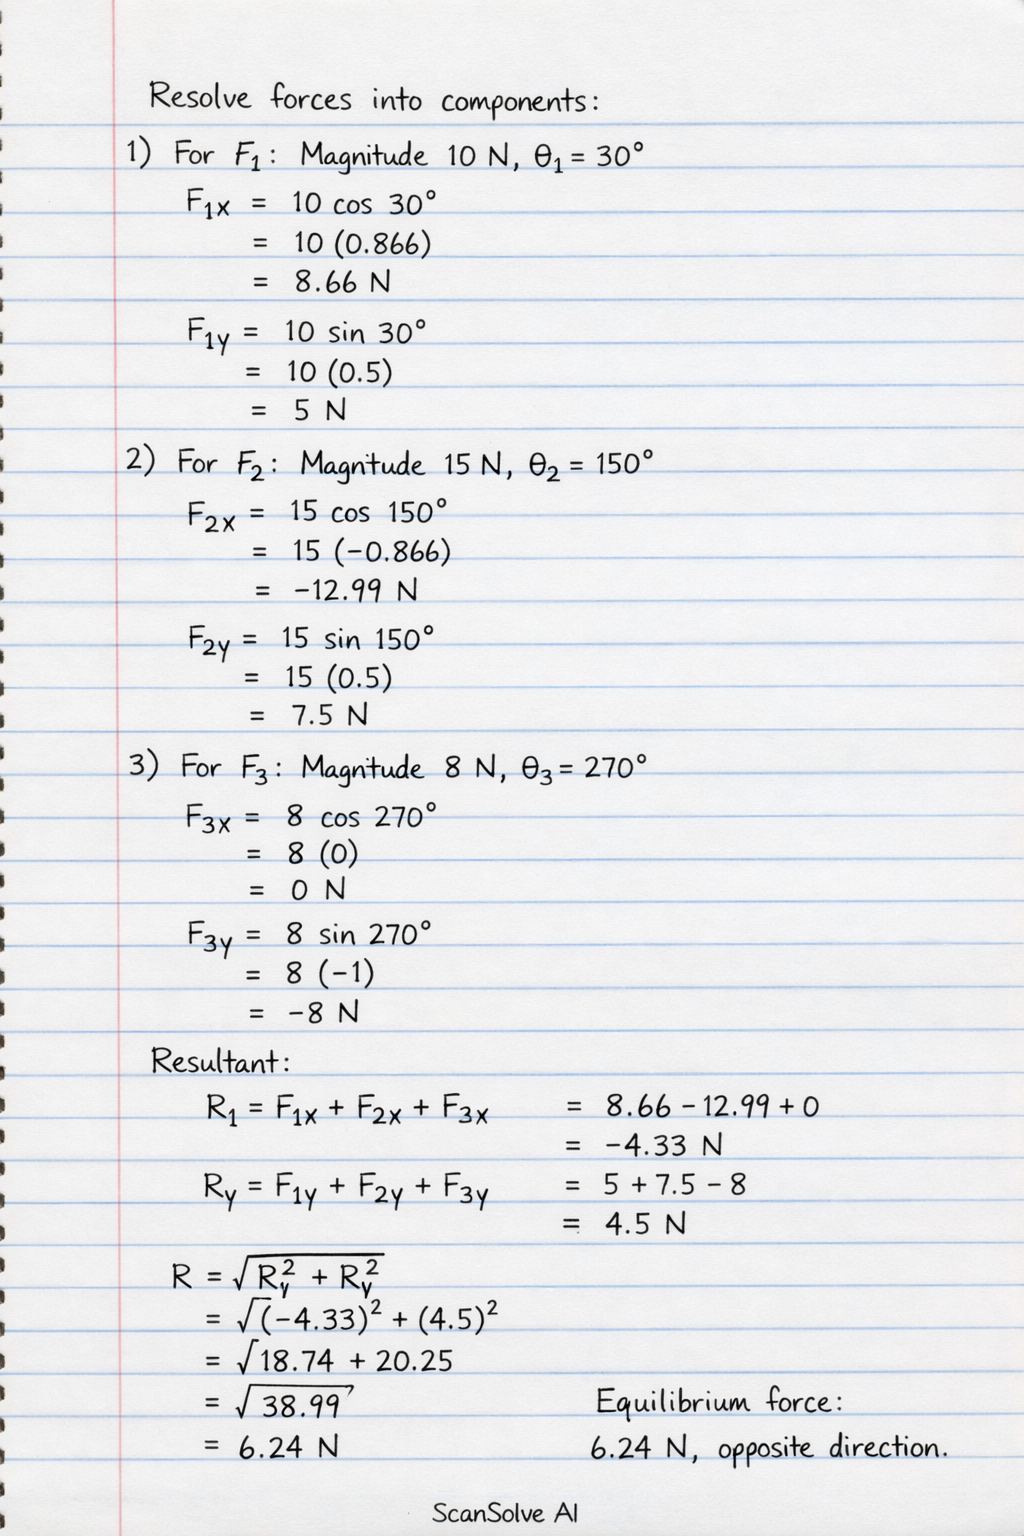 Resolve forces into components:
1) For F₁: Magnitude 10 N, θ₁ = 30°
F₁x = 10 cos 30°
= 10 (0.866)
= 8.66 N
F₁y = 10 sin 30°
= 10 (0.5)
= 5 N
2) For F₂: Magntude 15 N, θ₂ = 150°
F₂x = 15 cos 150°
= 15 (−0.866)
= −12.99 N
F₂y = 15 sin 150°
= 15 (0.5)
= 7.5 N
3) For F₃: Magntude 8 N, θ₃ = 270°
F₃x = 8 cos 270°
= 8 (0)
= 0 N
F₃y = 8 sin 270°
= 8 (−1)
= −8 N
Resultant:
R₁ = F₁x + F₂x + F₃x = 8.66 − 12.99 + 0
= −4.33 N
Ry = F₁y + F₂y + F₃y = 5 + 7.5 − 8
= 4.5 N
R = √Ry² + Ry²
= √(−4.33)² + (4.5)²
= √18.74 + 20.25
= √38.99
= 6.24 N
Equilibrium force:
6.24 N, opposite direction.
ScanSolve AI